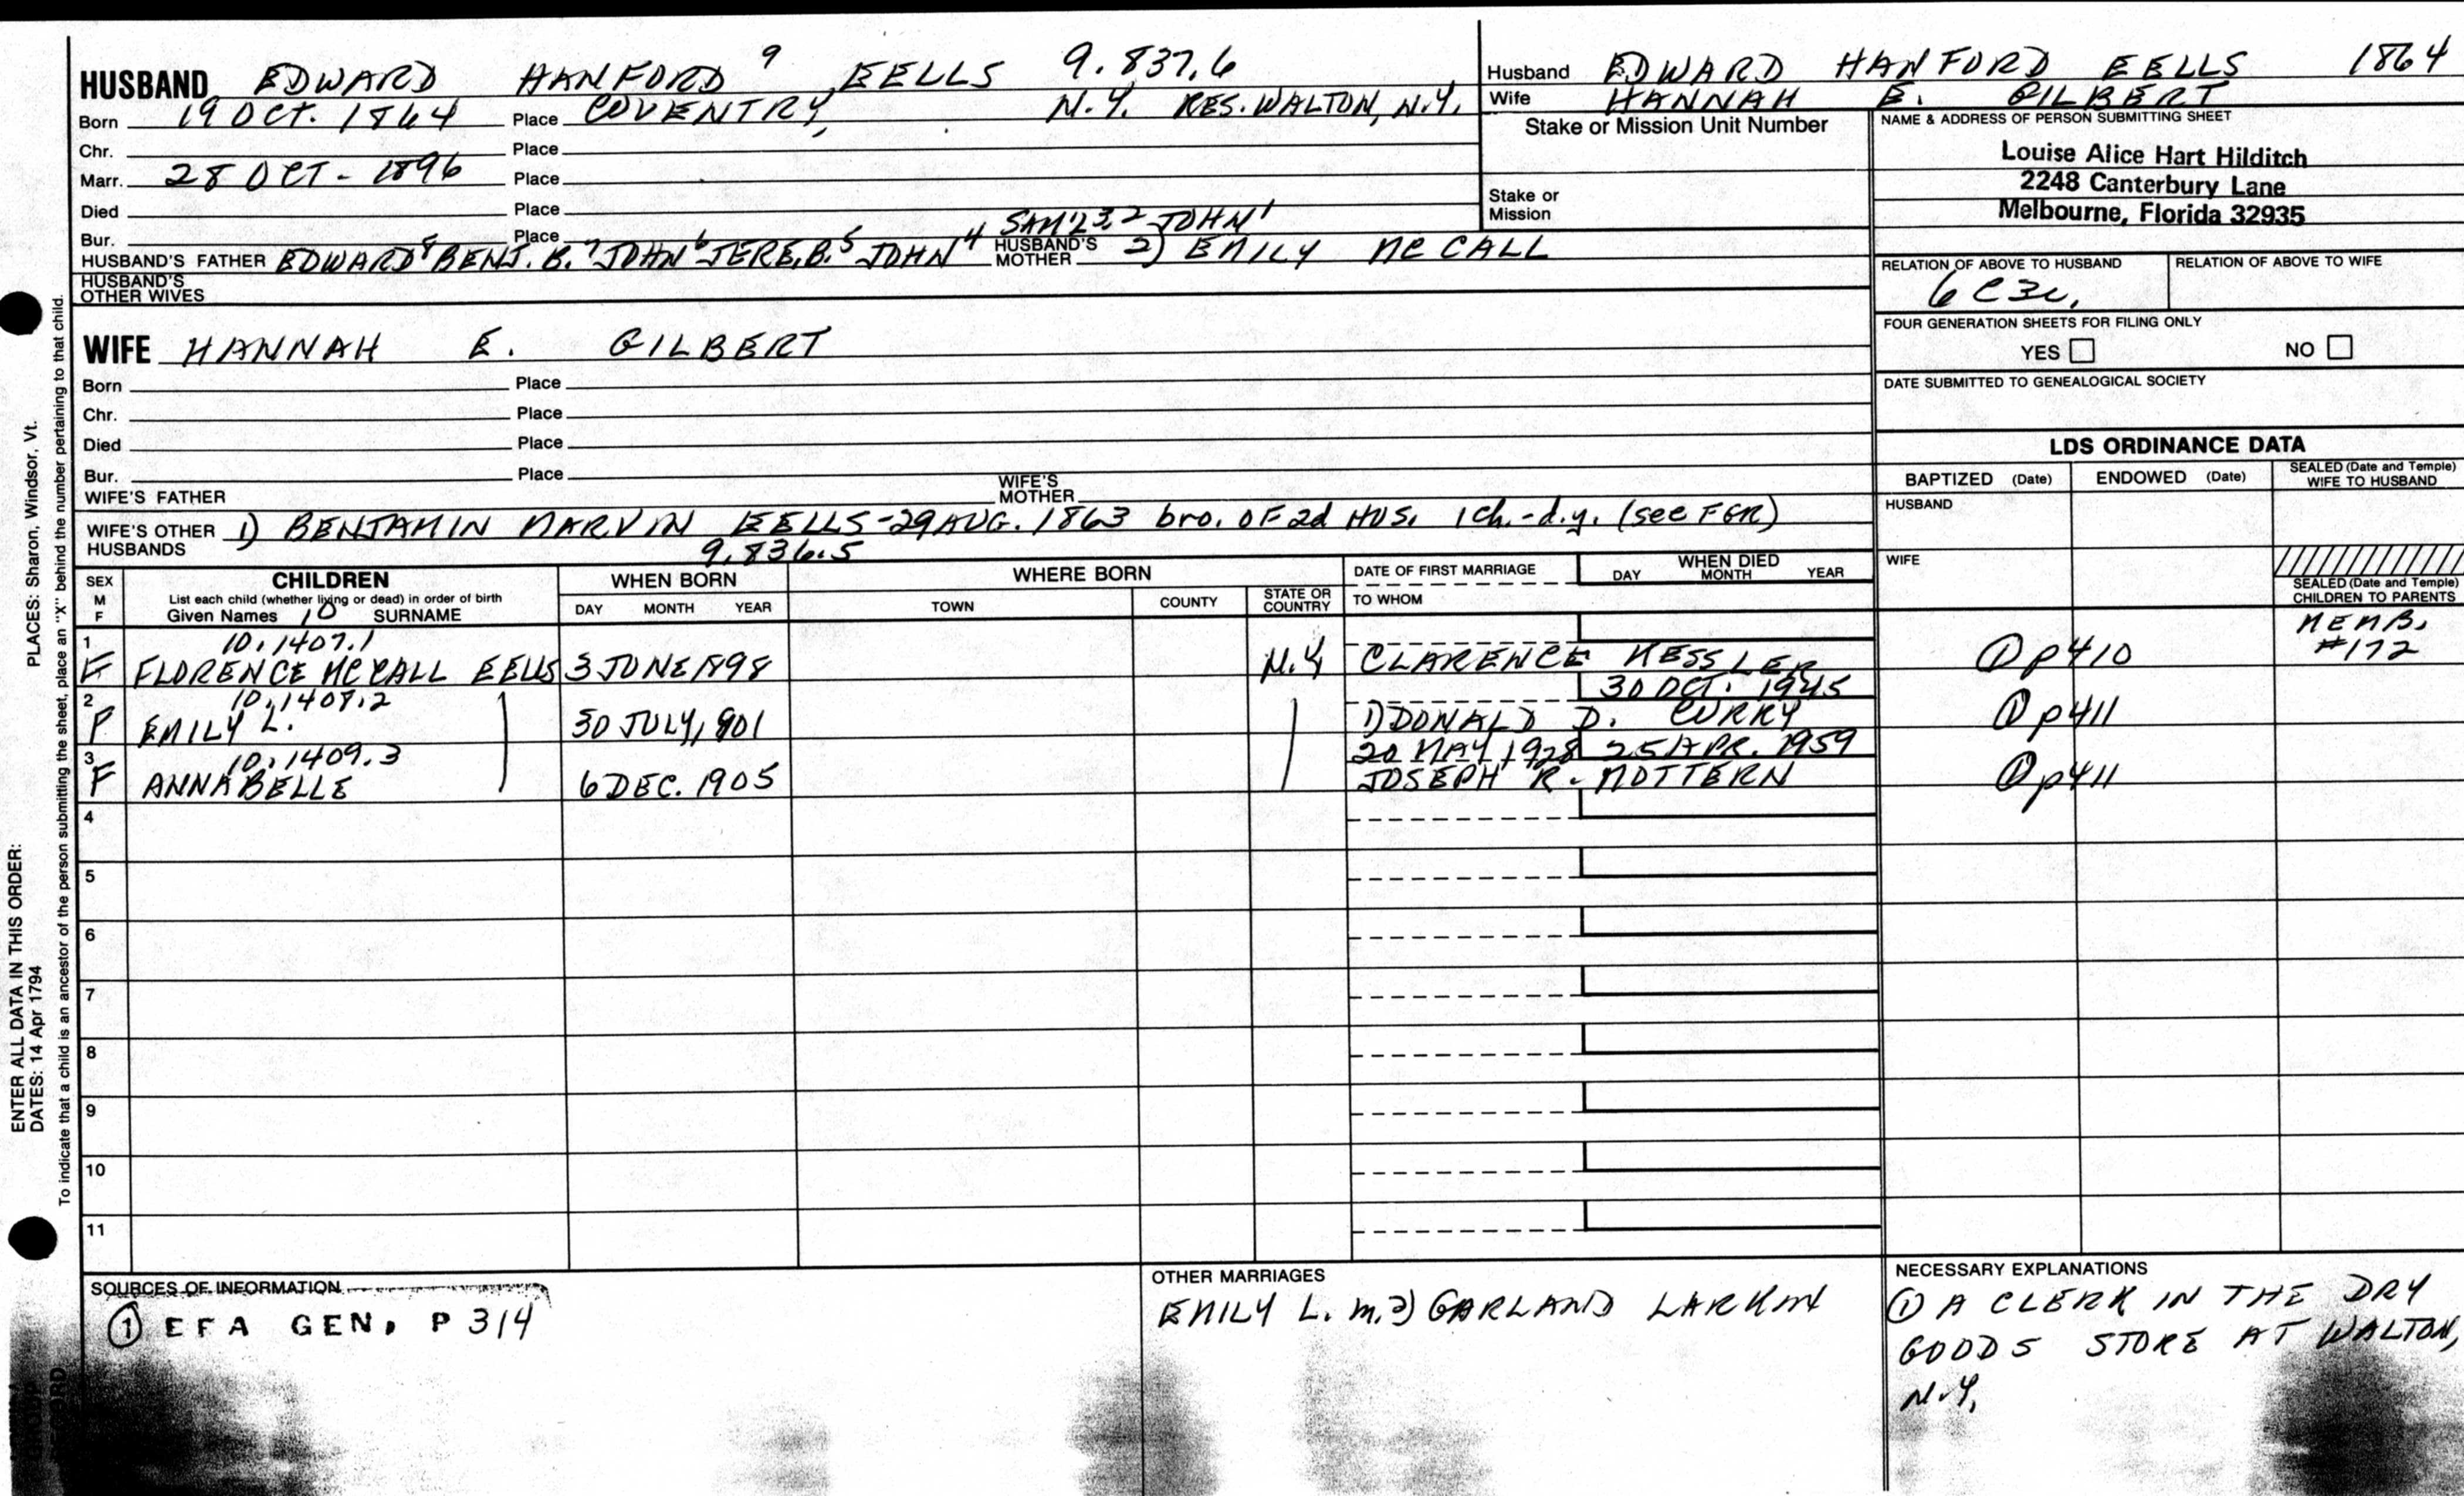 HUSBAND EDWARD HANFORD 9 EELLS 9.837.6
Born 19 OCT. 1864 Place COVENTRY, N.Y. RES. WALTON, N.Y.
Chr. Place
Marr. 28 OCT - 1896 Place
Died Place
Bur. Place SAM'L 3,2 JOHN 1
HUSBAND'S FATHER EDWARD 8 BENJ. B. 7 JOHN 6 JERE. B. 5 JOHN 4 HUSBAND'S MOTHER 2) EMILY MC CALL
HUSBAND'S OTHER WIVES
WIFE HANNAH E. GILBERT
Born Place
Chr. Place
Died Place
Bur. Place
WIFE'S FATHER WIFE'S MOTHER
WIFE'S OTHER HUSBANDS 1) BENJAMIN MARVIN EELLS-29 AUG. 1863 bro. OF 2d HUS. 1 ch.-d.y. (see FGR)
9.836.5
Husband EDWARD HANFORD EELLS 1864
Wife HANNAH E. GILBERT
Stake or Mission Unit Number
Stake or Mission
NAME & ADDRESS OF PERSON SUBMITTING SHEET
Louise Alice Hart Hilditch
2248 Canterbury Lane
Melbourne, Florida 32935
RELATION OF ABOVE TO HUSBAND RELATION OF ABOVE TO WIFE
6C3C,
FOUR GENERATION SHEETS FOR FILING ONLY
YES NO
DATE SUBMITTED TO GENEALOGICAL SOCIETY
LDS ORDINANCE DATA
BAPTIZED (Date) ENDOWED (Date) SEALED (Date and Temple) WIFE TO HUSBAND
HUSBAND
WIFE
SEALED (Date and Temple) CHILDREN TO PARENTS
SEX M F
CHILDREN
List each child (whether living or dead) in order of birth
Given Names 10 SURNAME
WHEN BORN
DAY MONTH YEAR
WHERE BORN
TOWN COUNTY STATE OR COUNTRY
DATE OF FIRST MARRIAGE
TO WHOM
WHEN DIED
DAY MONTH YEAR
1 10.1407.1 MEMB.
F FLORENCE MCCALL EELLS 3 JUNE 1898 N.Y. CLARENCE KESSLER ① p410 #172
2 10.1408.2 30 OCT. 1945
F EMILY L. 30 JULY, 1901 1) DONALD D. CURRY ① p411
3 10.1409.3 20 MAY 1928 25 APR. 1959
F ANNABELLE 6 DEC. 1905 JOSEPH R. MOTTERN ① p411
4
5
6
7
8
9
10
11
SOURCES OF INFORMATION
① EFA GEN. P 314
OTHER MARRIAGES
EMILY L. m. 2) GARLAND LARKIN
NECESSARY EXPLANATIONS
① A CLERK IN THE DRY
GOODS STORE AT WALTON,
N.Y.
ENTER ALL DATA IN THIS ORDER:
DATES: 14 Apr 1794 PLACES: Sharon, Windsor, Vt.
To indicate that a child is an ancestor of the person submitting the sheet, place an "X" behind the number pertaining to that child.